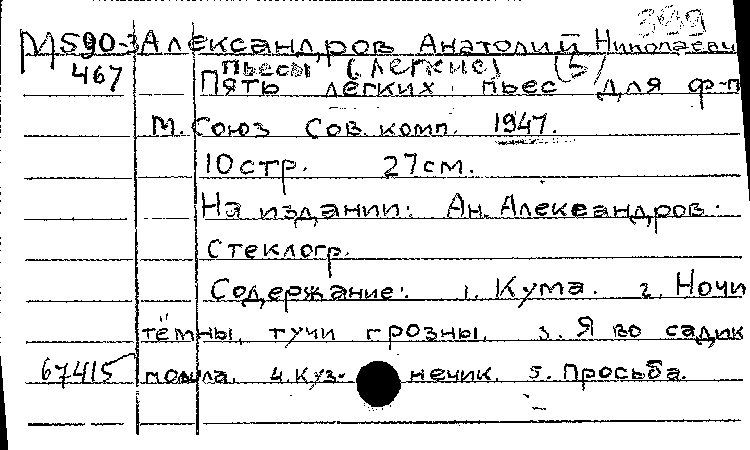 399
М590-3 Александров Анатолий Николаевич
Пьесы (легкие) (5)
467 Пять легких пьес для ф-п
М. Союз Сов. комп. 1947.
10 стр. 27 см.
На издании: Ан. Александров.
Стеклогр.
Содержание: 1. Кума. 2. Ночи
тёмны, тучи грозны. 3. Я во садик
67415 4. Куз- нечик. 5. Просьба.